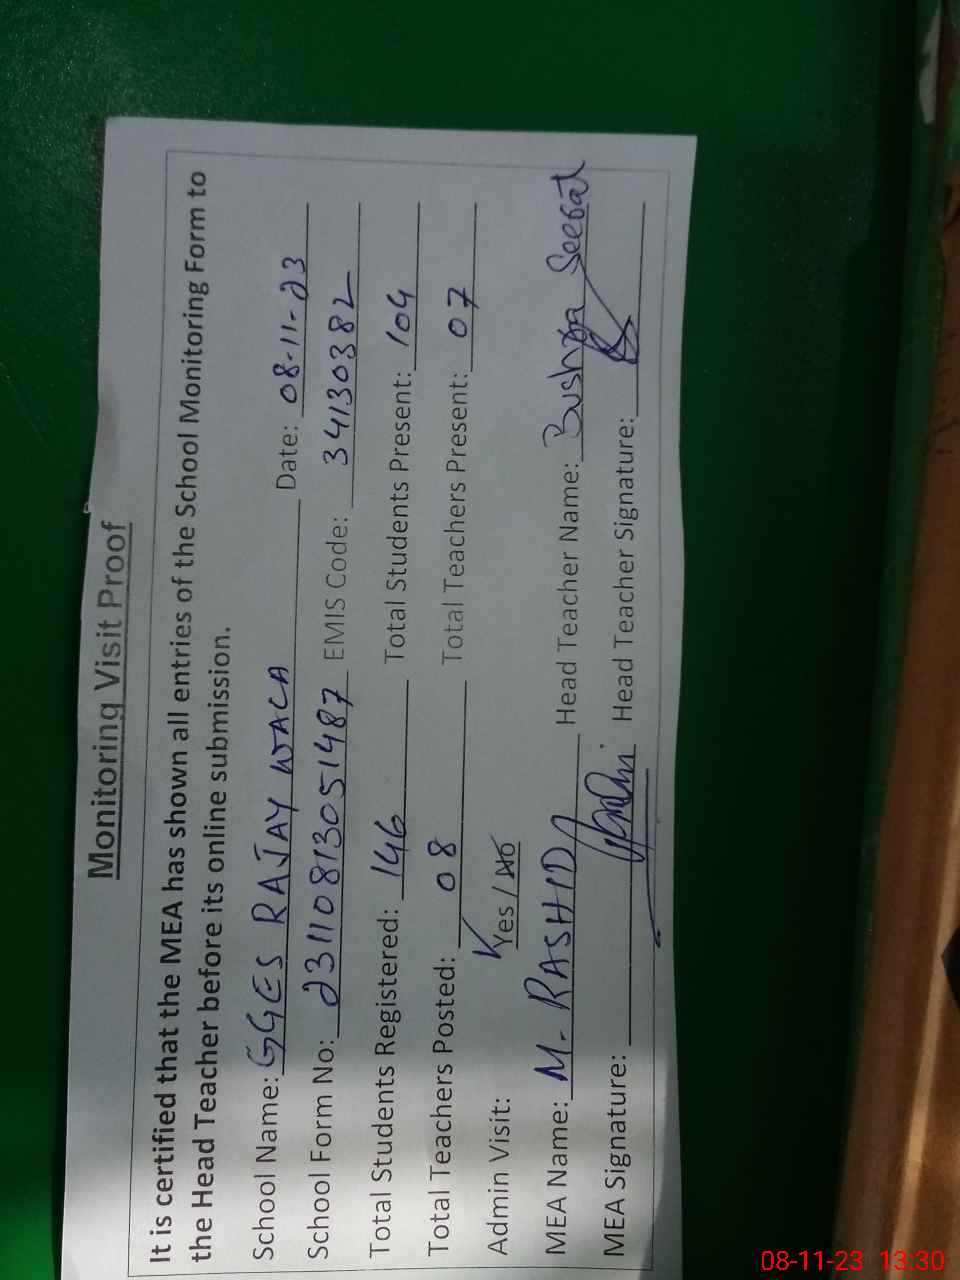 Monitoring Visit Proof
It is certified that the MEA has shown all entries of the School Monitoring Form to
the Head Teacher before its online submission.
School Name: GGES RAJAY WALA Date: 08-11-23
School Form No: 23110813051487 EMIS Code: 34130382
Total Students Registered: 146 Total Students Present: 104
Total Teachers Posted: 08 Total Teachers Present: 07
Admin Visit: Yes / No
MEA Name: M. RASHID Head Teacher Name: Bushra Seerat
MEA Signature: Head Teacher Signature:
08-11-23 13:30